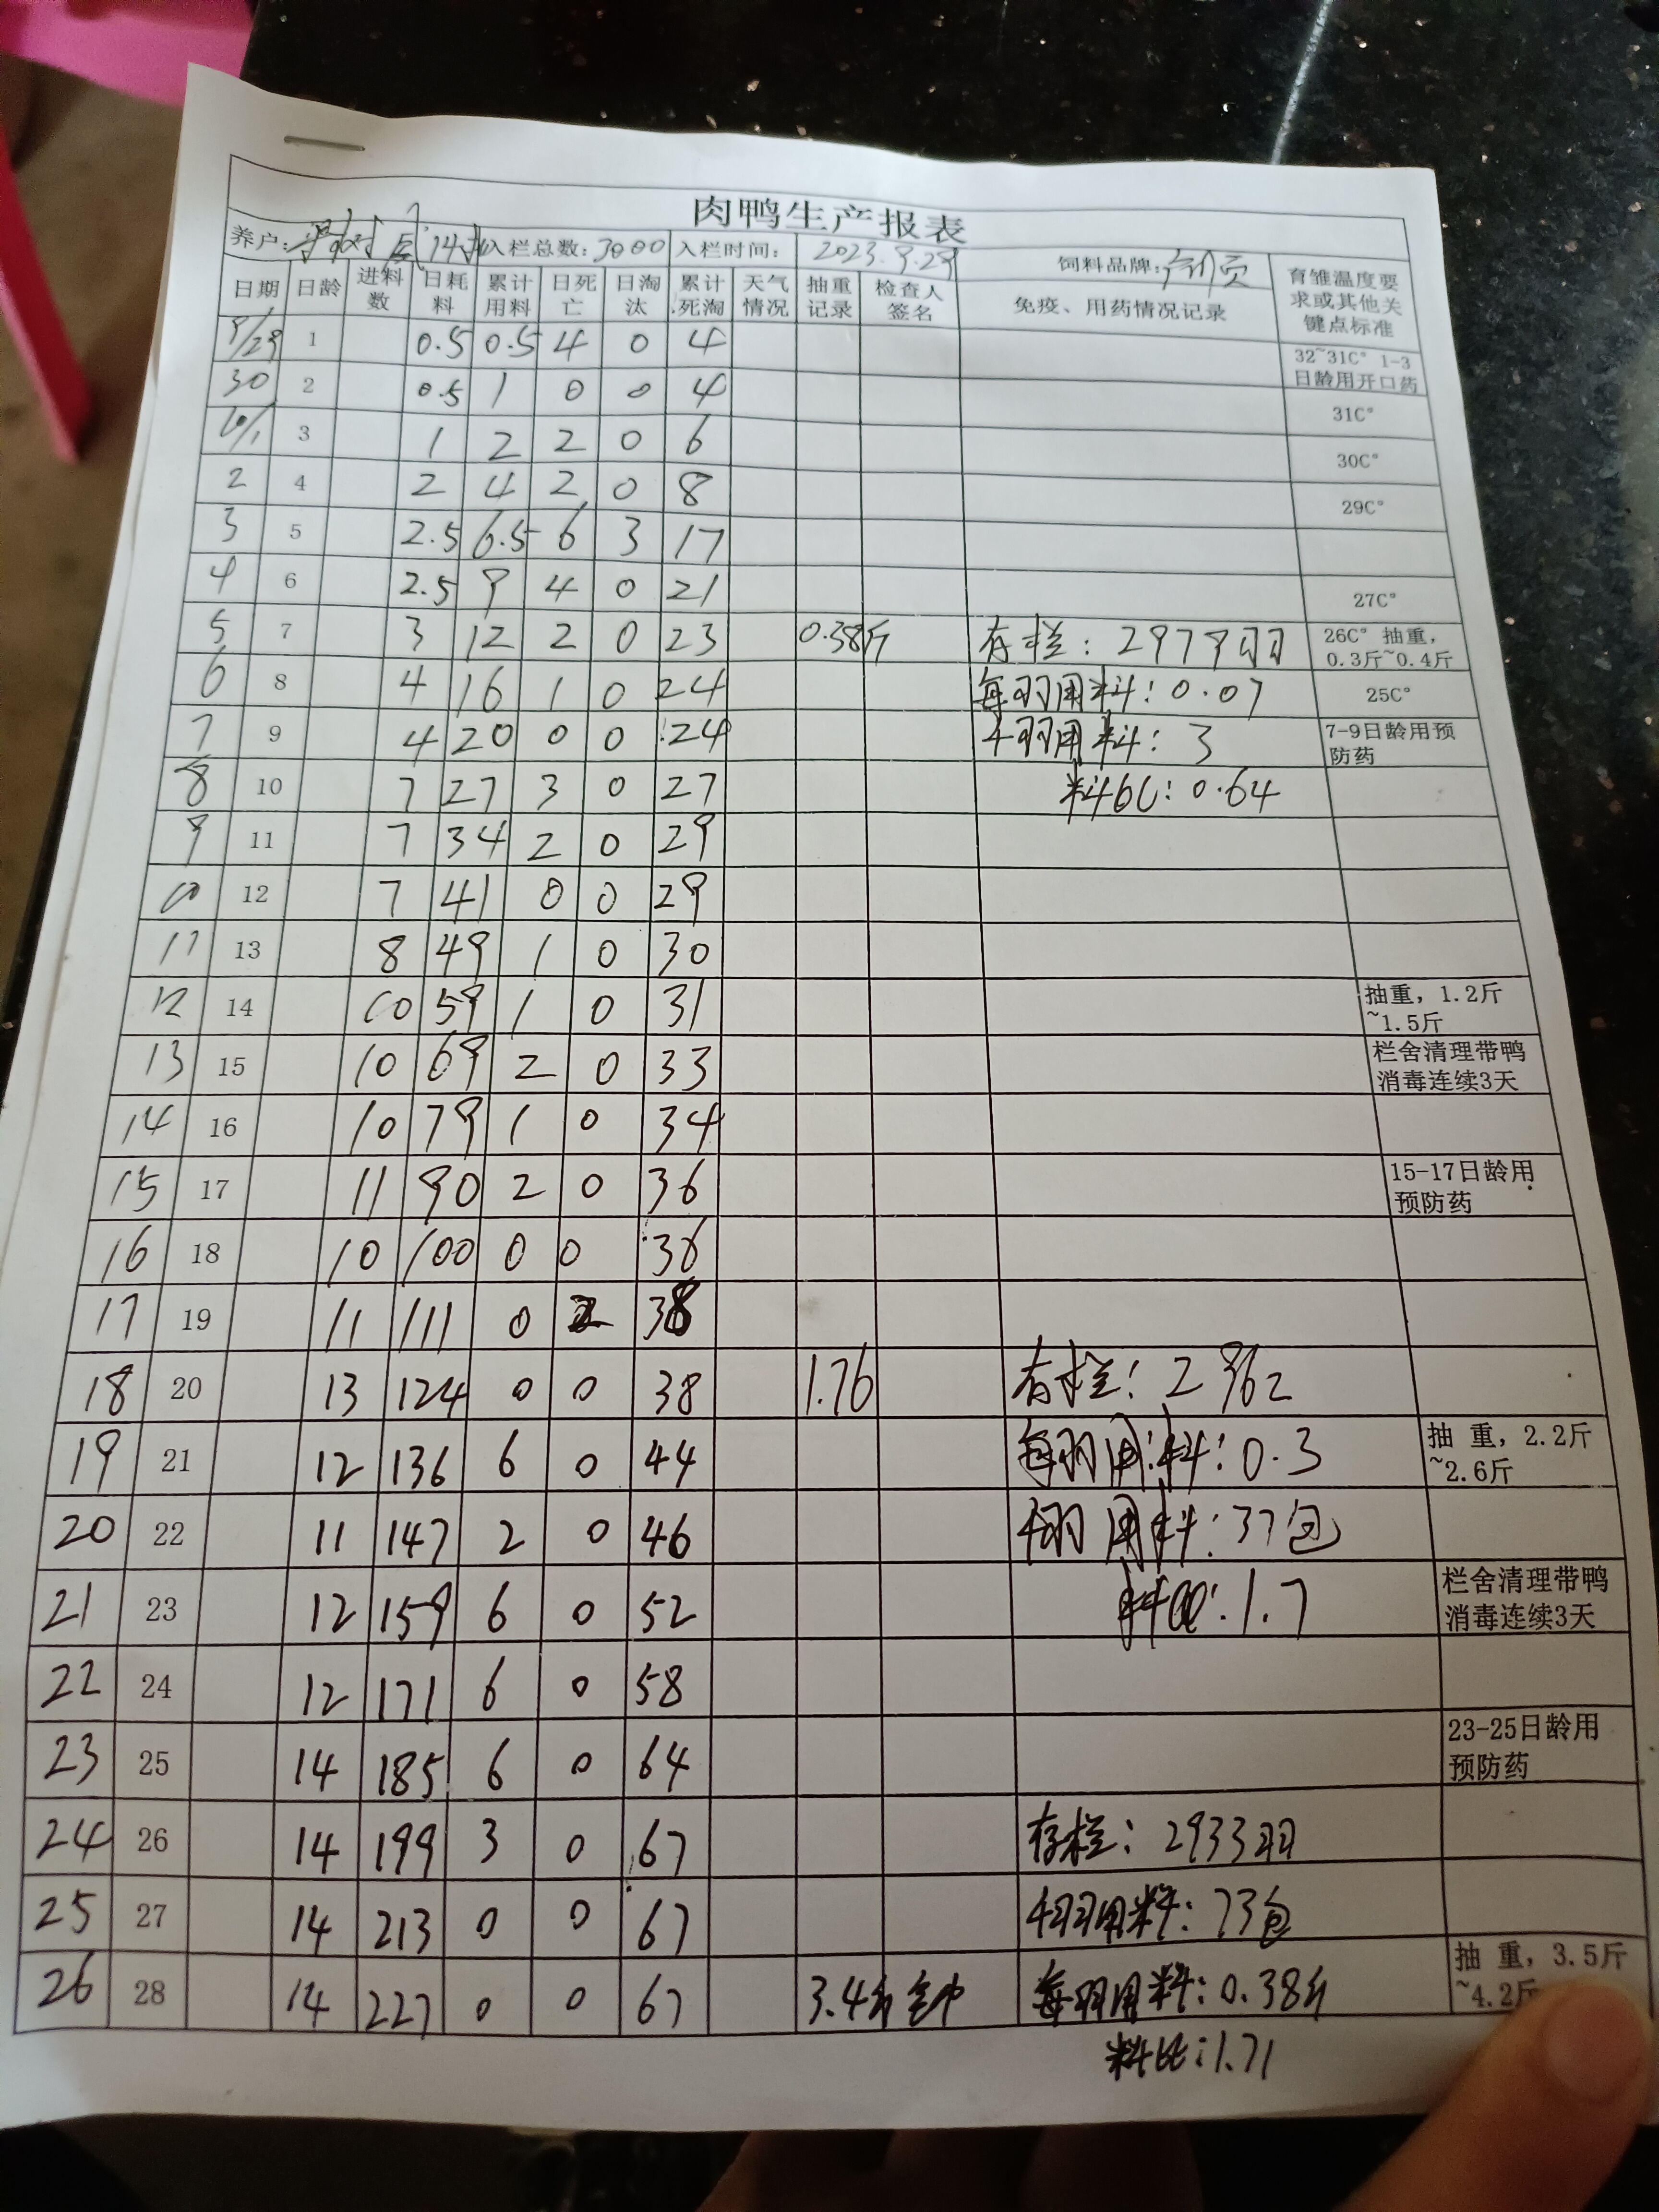 肉鸭生产报表
养户: 入栏总数:3000 入栏时间: 2023.9.29 饲料品牌:
日期 日龄 进料数 日耗料 累计用料 日死亡 日淘汰 累计死淘 天气情况 抽重记录 检查人签名 免疫、用药情况记录 育雏温度要求或其他关键点标准
9/29 1 0.5 0.5 4 0 4 32~31C° 1-3日龄用开口药
30 2 0.5 1 0 0 4 31C°
10/1 3 1 2 2 0 6 30C°
2 4 2 4 2 0 8 29C°
3 5 2.5 6.5 6 3 17
4 6 2.5 9 4 0 21 27C°
5 7 3 12 2 0 23 0.38斤 存栏:2979羽 26C° 抽重,0.3斤~0.4斤
6 8 4 16 1 0 24 每羽用料:0.07 25C°
7 9 4 20 0 0 24 千羽用料:3 7-9日龄用预防药
8 10 7 27 3 0 27 料比:0.64
9 11 7 34 2 0 29
10 12 7 41 0 0 29
11 13 8 49 1 0 30
12 14 10 59 1 0 31 抽重,1.2斤~1.5斤
13 15 10 69 2 0 33 栏舍清理带鸭消毒连续3天
14 16 10 79 1 0 34
15 17 11 90 2 0 36 15-17日龄用预防药
16 18 10 100 0 0 36
17 19 11 111 0 2 38
18 20 13 124 0 0 38 1.76 存栏:2962
19 21 12 136 6 0 44 每羽用料:0.3 抽 重,2.2斤~2.6斤
20 22 11 147 2 0 46 千羽用料:37包
21 23 12 159 6 0 52 料比:1.7 栏舍清理带鸭消毒连续3天
22 24 12 171 6 0 58
23 25 14 185 6 0 64 23-25日龄用预防药
24 26 14 199 3 0 67 存栏:2933羽
25 27 14 213 0 0 67 千羽用料:73包
26 28 14 227 0 0 67 3.4斤 每羽用料:0.38斤 抽 重,3.5斤~4.2斤
料比:1.71